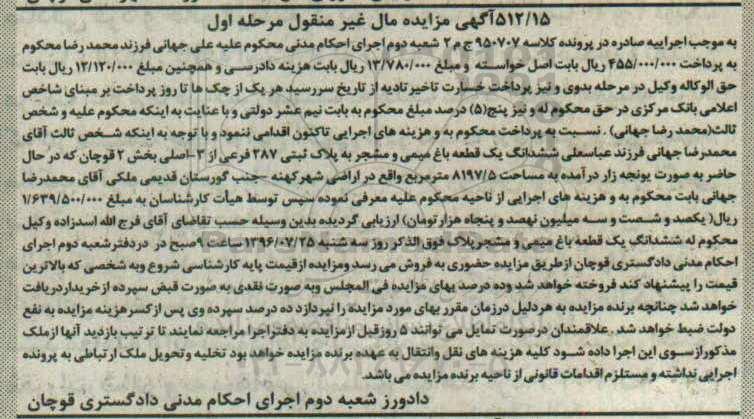 ۵۱۲/۱۵آگهی مزایده مال غیر منقول مرحله اول
به موجب اجراییه صادره در پرونده کلاسه ۹۵۰۷۰۷ ج م ۲ شعبه دوم اجرای احکام مدنی محکوم علیه علی جهانی فرزند محمد رضا محکوم
به پرداخت ۴۵۵/۰۰۰/۰۰۰ ریال بابت اصل خواسته و مبلغ ۱۳/۷۸۰/۰۰۰ ریال بابت هزینه دادرسی و همچنین مبلغ ۱۲/۱۲۰/۰۰۰ ریال بابت
حق الوکاله وکیل در مرحله بدوی و نیز پرداخت خسارت تاخیر تادیه از تاریخ سررسید هر یک از چک ها تا روز پرداخت بر مبنای شاخص
اعلامی بانک مرکزی در حق محکوم له و نیز پنج(۵) درصد مبلغ محکوم به بابت نیم عشر دولتی و با عنایت به اینکه محکوم علیه و شخص
ثالث(محمد رضا جهانی) . نسبت به پرداخت محکوم به و هزینه های اجرایی تاکنون اقدامی ننمود و با توجه به اینکه شخص ثالث آقای
محمدرضا جهانی فرزند عباسعلی ششدانگ یک قطعه باغ میمی و مشجر به پلاک ثبتی ۲۸۷ فرعی از ۳-اصلی بخش ۲ قوچان که در حال
حاضر به صورت یونجه زار درآمده به مساحت ۸۱۹۷/۵ مترمربع واقع در اراضی شهرکهنه -جنب گورستان قدیمی ملکی آقای محمدرضا
جهانی بابت محکوم به و هزینه های اجرایی از ناحیه محکوم علیه معرفی نموده سپس توسط هیأت کارشناسان به مبلغ ۱/۶۳۹/۵۰۰/۰۰۰
ریال( یکصد و شصت و سه میلیون نهصد و پنجاه هزار تومان) ارزیابی گردیده بدین وسیله حسب تقاضای آقای فرج الله اسدزاده وکیل
محکوم له ششدانگ یک قطعه باغ میمی و مشجر پلاک فوق الذکر روز سه شنبه ۱۳۹۶/۰۷/۲۵ ساعت ۹صبح در دردفترشعبه دوم اجرای
احکام مدنی دادگستری قوچان ازطریق مزایده حضوری به فروش می رسد ومزایده ازقیمت پایه کارشناسی شروع وبه شخصی که بالاترین
قیمت را پیشنهاد کند فروخته خواهد شد وده درصد بهای مزایده فی المجلس وبه صورت نقدی به صورت قبض سپرده ازخریداردریافت
خواهد شد چنانچه برنده مزایده به هردلیل درزمان مقرر بهای مورد مزایده را نپردازد ده درصد سپرده وی پس ازکسرهزینه مزایده به نفع
دولت ضبط خواهد شد . علاقمندان درصورت تمایل می توانند ۵ روزقبل ازمزایده به دفتراجرا مراجعه نمایند تا ترتیب بازدید آنها ازملک
مذکورازسوی این اجرا داده شود کلیه هزینه های نقل وانتقال به عهده برنده مزایده خواهد بود تخلیه وتحویل ملک ارتباطی به پرونده
اجرایی نداشته و مستلزم اقدامات قانونی از ناحیه برنده مزایده می باشد.
دادورز شعبه دوم اجرای احکام مدنی دادگستری قوچان